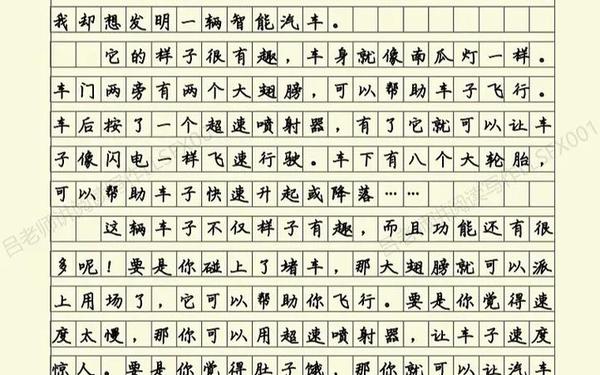 我却想发明一辆智能汽车。
它的样子很有趣，车身就像南瓜灯一样。
车门两旁有两个大翅膀，可以帮助车子飞行。
车后按了一个超速喷射器，有了它就可以让车
子像闪电一样飞速行驶。车下有八个大轮胎，
可以帮助车子快速升起或降落……
这辆车子不仅样子有趣，而且功能还有很
多呢！要是你碰上了堵车，那大翅膀就可以派
上用场了，它可以帮助你飞行。要是你觉得速
度太慢，那你可以用超速喷射器，让车子速度
惊人。要是你觉得肚子饿，那你就可以让汽车